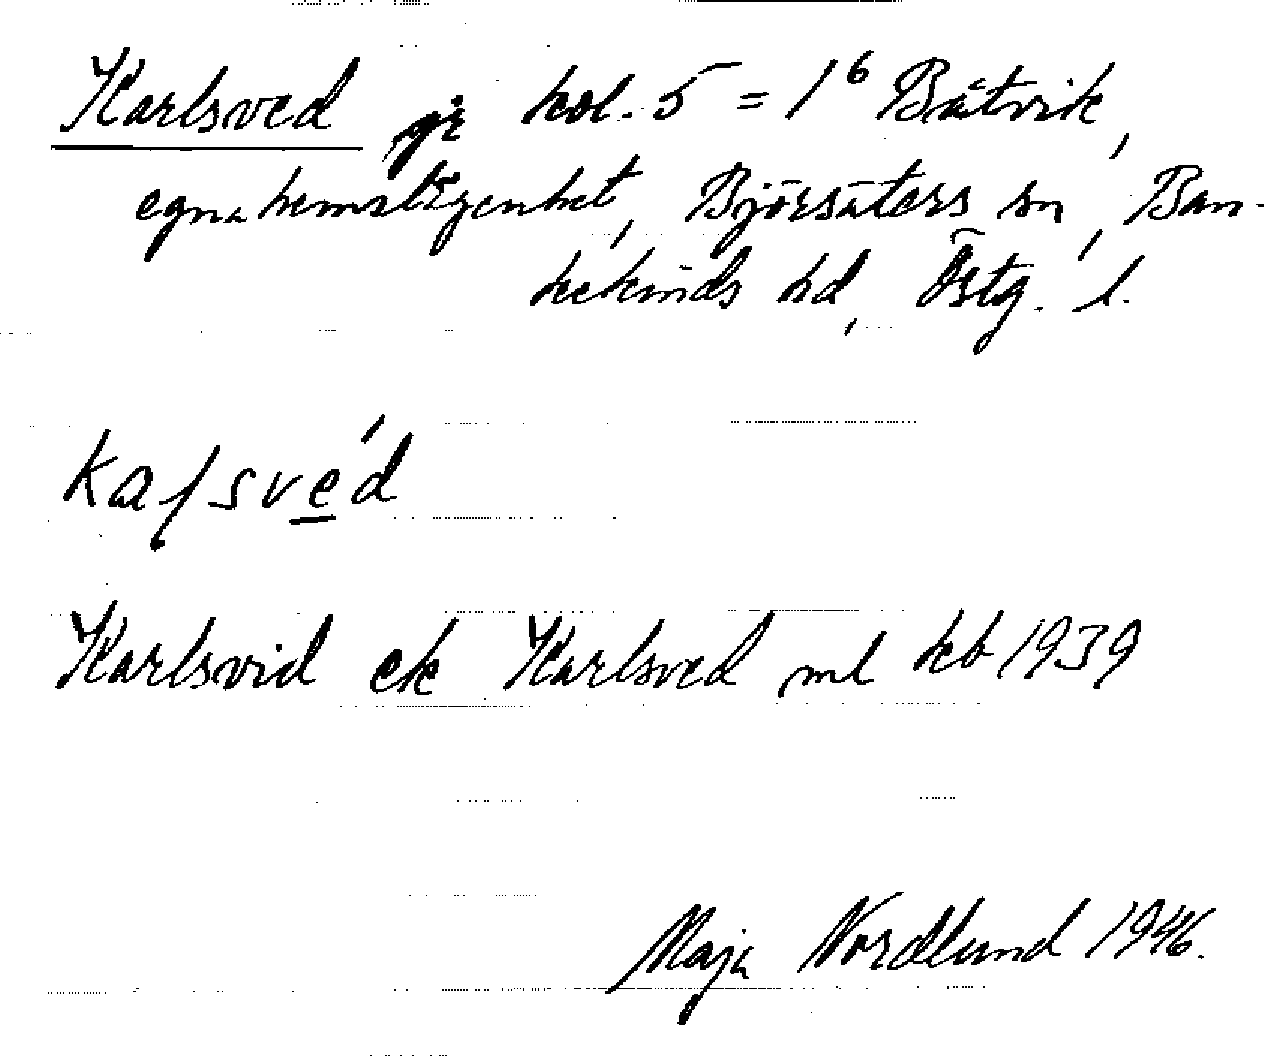 Karlsved gå kol. 5 = 1⁶ Båtvik,
egnahemslägenhet, Björsäters sn, Ban-
kekinds hd, Östg. l.
kaſsvé̲d
Karlsvid ek Karlsved ml kb 1939
Maja Nordlund 1946.